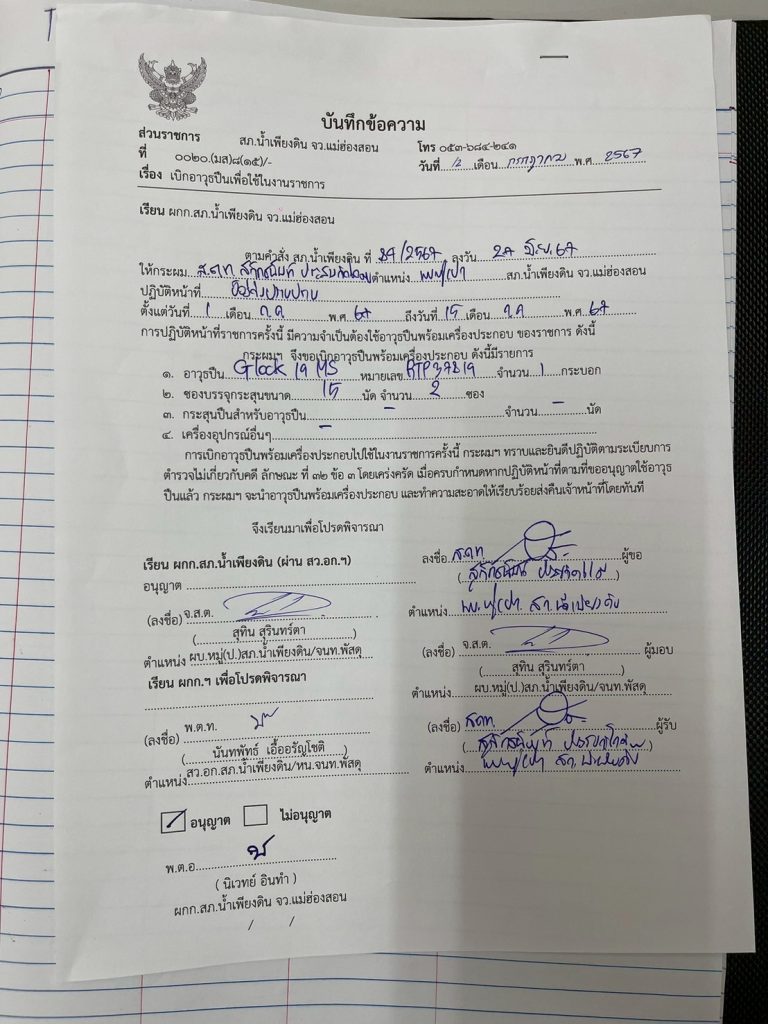 บันทึกข้อความ
ส่วนราชการ สภ.น้ำเพียงดิน จว.แม่ฮ่องสอน โทร ๐๕๓-๖๘๔-๒๔๑
ที่ ๐๐๒๐.(มส)๘(๑๕)/- วันที่ 12 เดือน กรกฎาคม พ.ศ. 2567
เรื่อง เบิกอาวุธปืนเพื่อใช้ในงานราชการ
เรียน ผกก.สภ.น้ำเพียงดิน จว.แม่ฮ่องสอน
ตามคำสั่ง สภ.น้ำเพียงดิน ที่ /2567 ลงวัน มิ.ย. 67
ให้กระผม ส.ต.ท. ตำแหน่ง สภ.น้ำเพียงดิน จว.แม่ฮ่องสอน
ปฏิบัติหน้าที่
ตั้งแต่วันที่ 1 เดือน ก.ค. พ.ศ. 67 ถึงวันที่ 15 เดือน ก.ค. พ.ศ. 67
การปฏิบัติหน้าที่ราชการครั้งนี้ มีความจำเป็นต้องใช้อาวุธปืนพร้อมเครื่องประกอบ ของราชการ ดังนี้
กระผมฯ จึงขอเบิกอาวุธปืนพร้อมเครื่องประกอบ ดังนี้มีรายการ
๑. อาวุธปืน Glock 19 MS หมายเลข RTP37819 จำนวน 1 กระบอก
๒. ซองบรรจุกระสุนขนาด 15 นัด จำนวน 2 ซอง
๓. กระสุนปืนสำหรับอาวุธปืน - จำนวน - นัด
๔. เครื่องอุปกรณ์อื่นๆ -
การเบิกอาวุธปืนพร้อมเครื่องประกอบไปใช้ในงานราชการครั้งนี้ กระผมฯ ทราบและยินดีปฏิบัติตามระเบียบการ
ตำรวจไม่เกี่ยวกับคดี ลักษณะ ที่ ๓๒ ข้อ ๓ โดยเคร่งครัด เมื่อครบกำหนดหากปฏิบัติหน้าที่ตามที่ขออนุญาตใช้อาวุธ
ปืนแล้ว กระผมฯ จะนำอาวุธปืนพร้อมเครื่องประกอบ และทำความสะอาดให้เรียบร้อยส่งคืนเจ้าหน้าที่โดยทันที
จึงเรียนมาเพื่อโปรดพิจารณา
เรียน ผกก.สภ.น้ำเพียงดิน (ผ่าน สว.อก.ฯ) ลงชื่อ ส.ต.ท. ผู้ขอ
อนุญาต
(ลงชื่อ) จ.ส.ต. ตำแหน่ง
( สุทิน สุรินทร์ตา ) (ลงชื่อ) จ.ส.ต. ผู้มอบ
ตำแหน่ง ผบ.หมู่(ป.)สภ.น้ำเพียงดิน/จนท.พัสดุ ( สุทิน สุรินทร์ตา )
เรียน ผกก.ฯ เพื่อโปรดพิจารณา ตำแหน่ง ผบ.หมู่(ป.)สภ.น้ำเพียงดิน/จนท.พัสดุ
(ลงชื่อ) พ.ต.ท. (ลงชื่อ) ส.ต.ท. ผู้รับ
( นันทพัทธ์ เอื้ออรัญโชติ )
ตำแหน่ง สว.อก.สภ.น้ำเพียงดิน/หน.จนท.พัสดุ ตำแหน่ง
อนุญาต ไม่อนุญาต
พ.ต.อ.
( นิเวทย์ อินทำ )
ผกก.สภ.น้ำเพียงดิน จว.แม่ฮ่องสอน
/ /